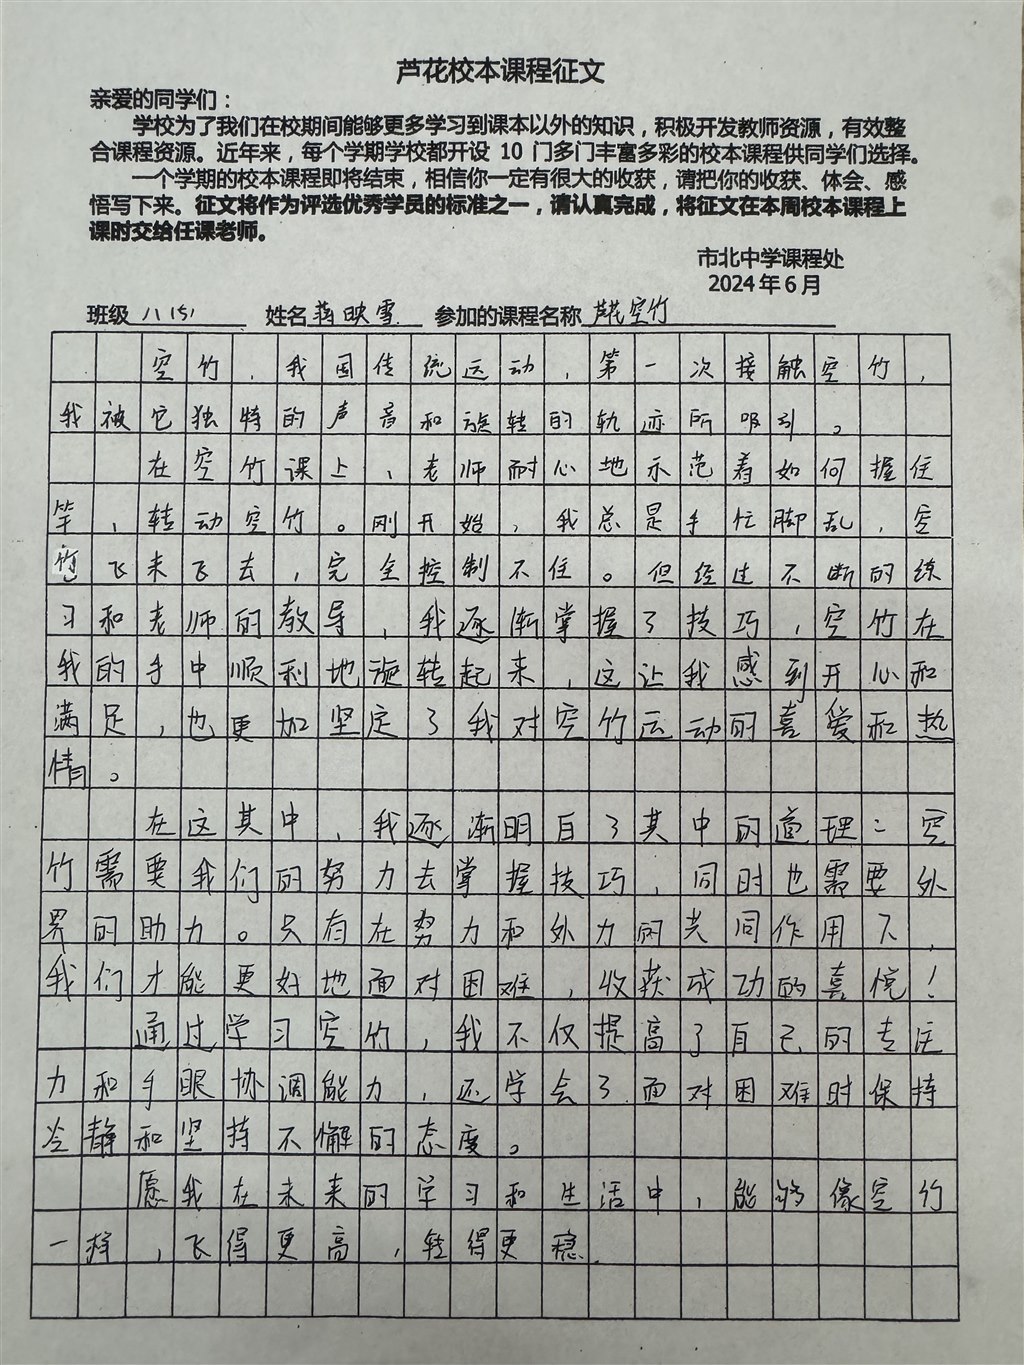 芦花校本课程征文
亲爱的同学们：
学校为了我们在校期间能够更多学习到课本以外的知识，积极开发教师资源，有效整
合课程资源。近年来，每个学期学校都开设 10 门多门丰富多彩的校本课程供同学们选择。
一个学期的校本课程即将结束，相信你一定有很大的收获，请把你的收获、体会、感
悟写下来。征文将作为评选优秀学员的标准之一，请认真完成，将征文在本周校本课程上
课时交给任课老师。
市北中学课程处
2024 年 6 月
班级 八(5) 姓名 蒋映雪 参加的课程名称 芦花空竹
空竹，我国传统运动，第一次接触空竹，
我被它独特的声音和旋转的轨迹所吸引。
在空竹课上，老师耐心地示范着如何握住
竿，转动空竹。刚开始，我总是手忙脚乱，空
竹飞来飞去，完全控制不住。但经过不断的练
习和老师的教导，我逐渐掌握了技巧，空竹在
我的手中顺利地旋转起来，这让我感到开心和
满足，也更加坚定了我对空竹运动的喜爱和热
情。
在这其中，我逐渐明白了其中的道理：空
竹需要我们的努力去掌握技巧，同时也需要外
界的助力。只有在努力和外力的共同作用下，
我们才能更好地面对困难，收获成功的喜悦！
通过学习空竹，我不仅提高了自己的专注
力和手眼协调能力，还学会了面对困难时保持
冷静和坚持不懈的态度。
愿我在未来的学习和生活中，能够像空竹
一样，飞得更高，转得更稳.